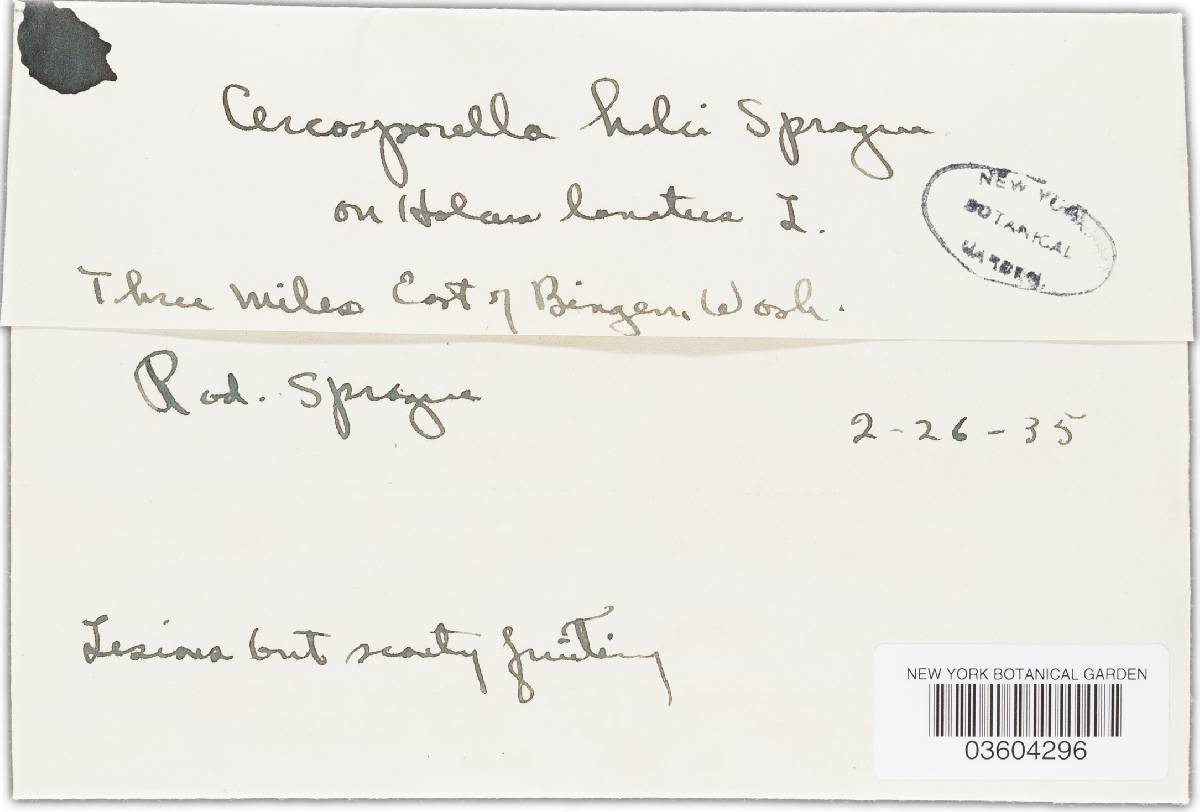 Cercosporella holci Sprague
on Holcus lanatus L.
NEW YORK
BOTANICAL
GARDEN
Three Miles East of Bingen, Wash.
Rod. Sprague
2-26-35
Lesions but scanty fruiting
NEW YORK BOTANICAL GARDEN
03604296